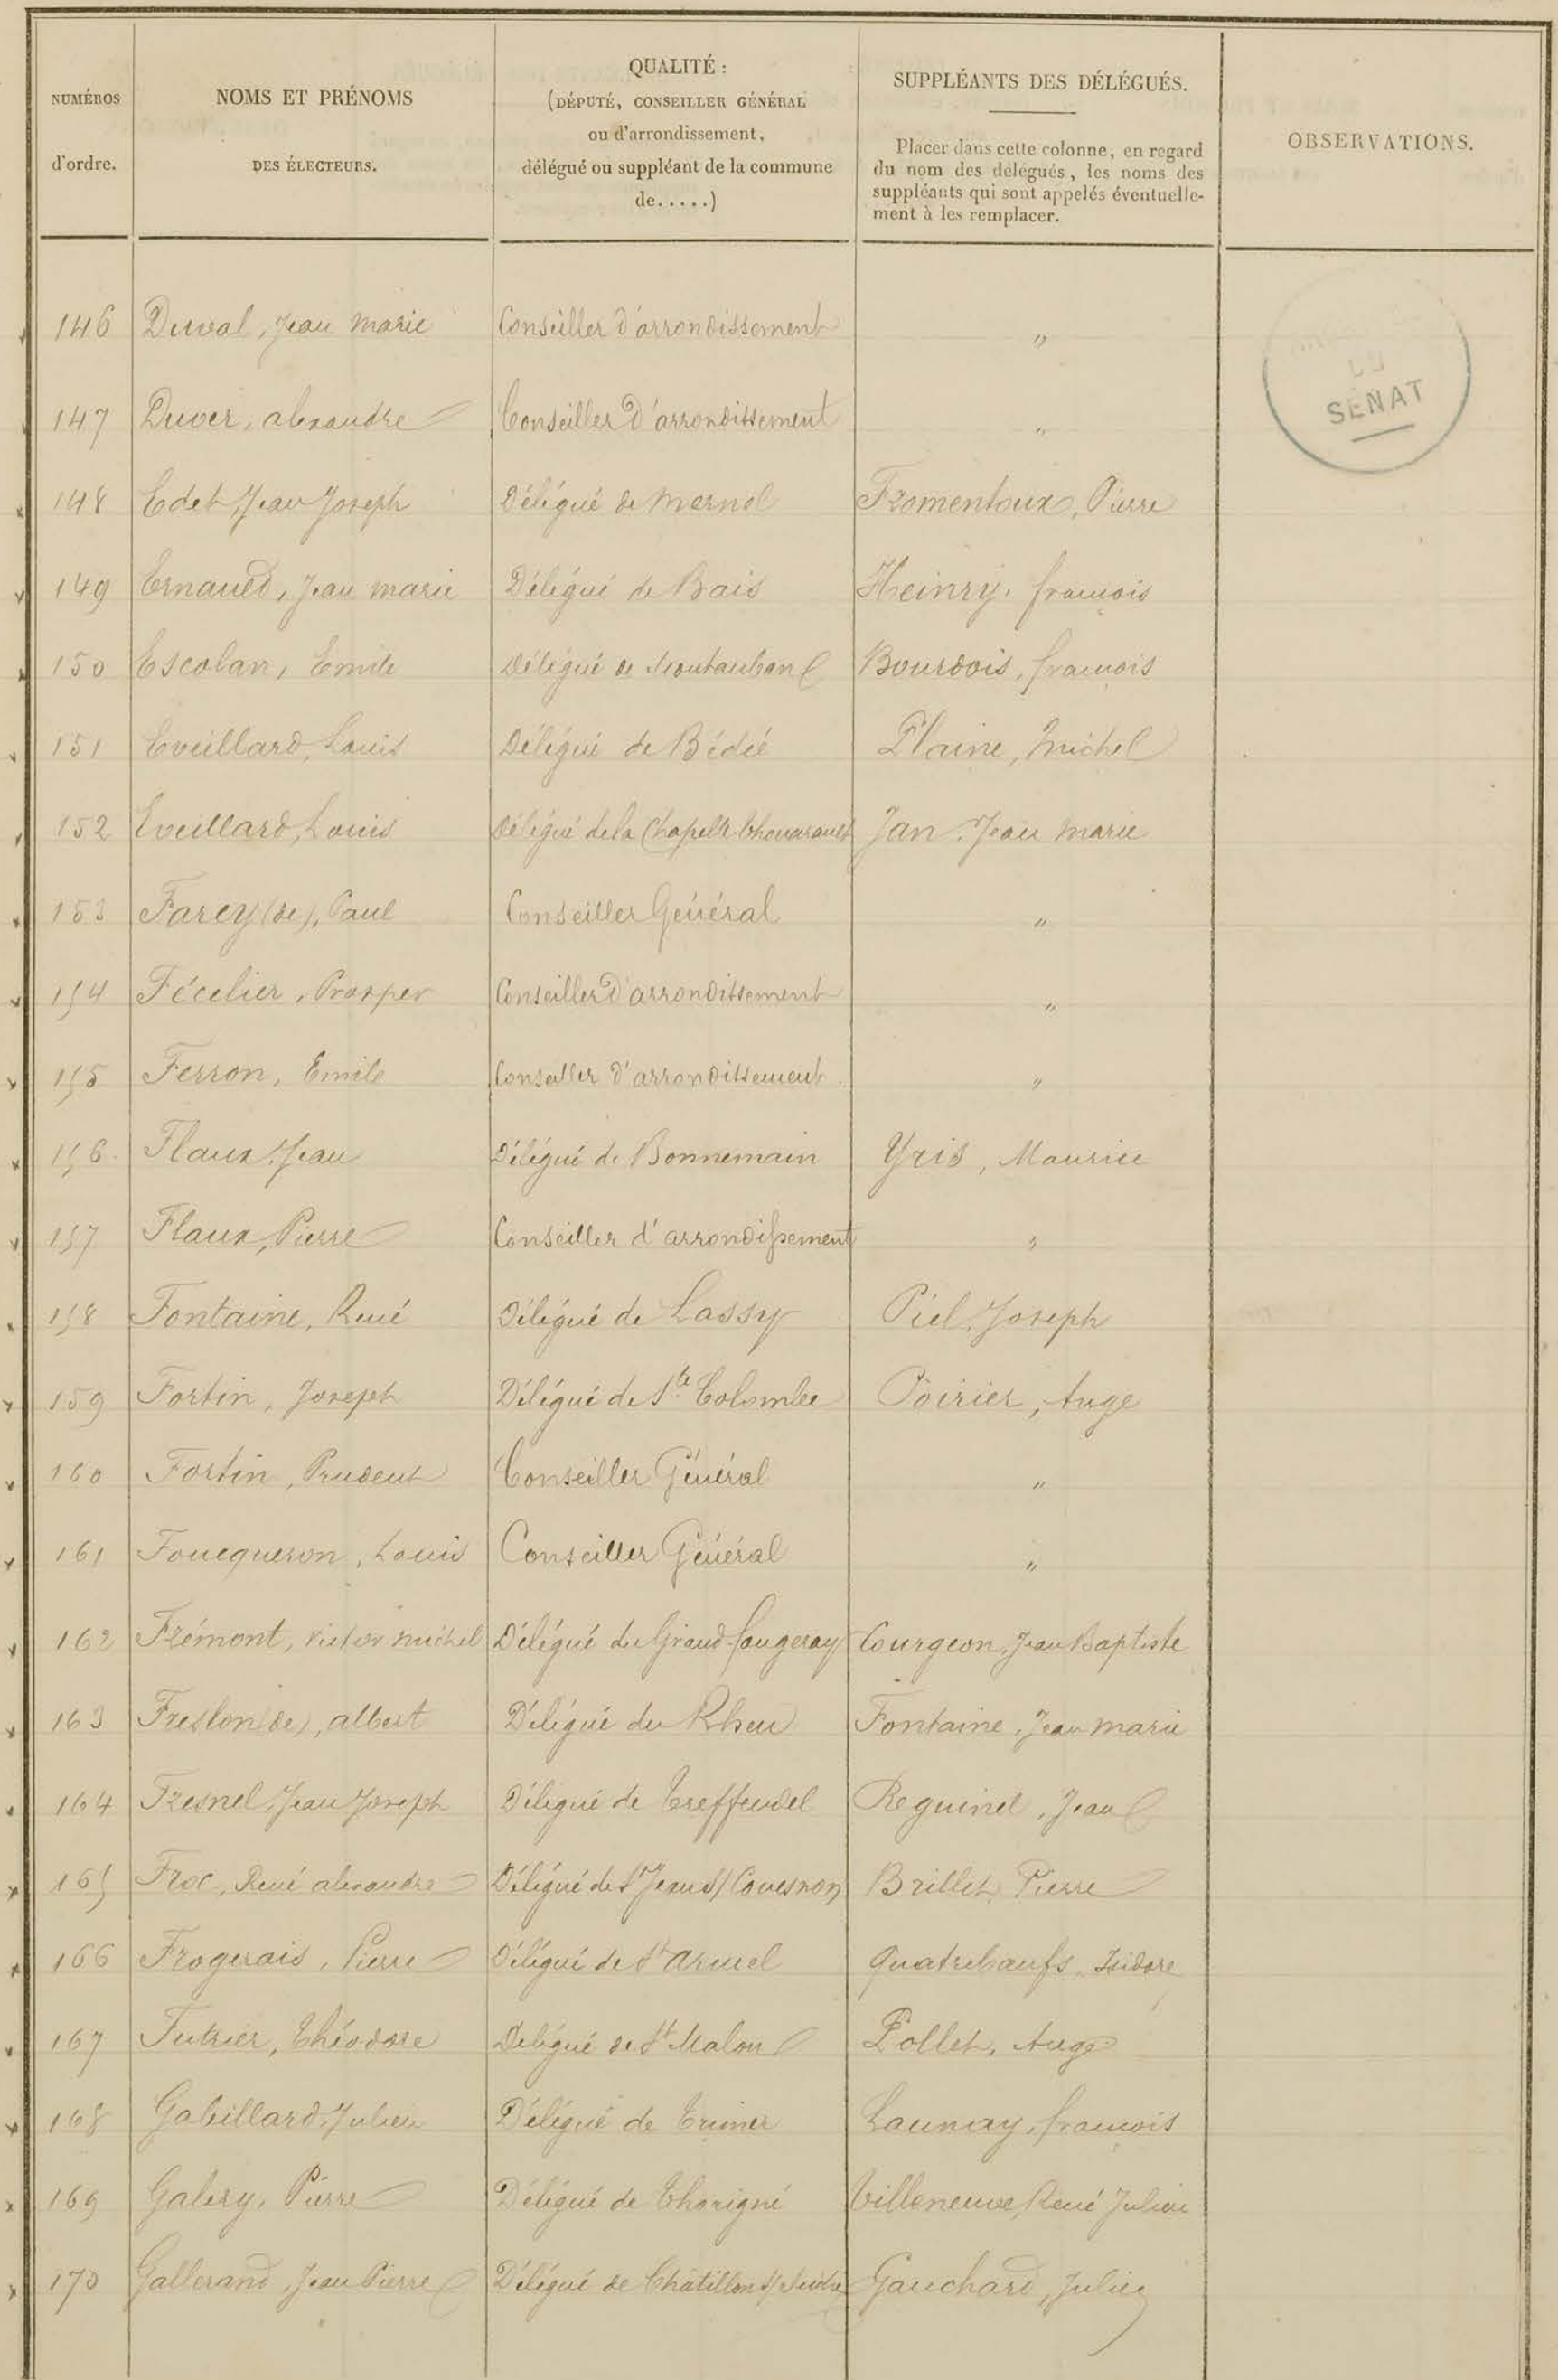 NUMÉROS d'ordre. NOMS ET PRÉNOMS DES ÉLECTEURS. QUALITÉ : (DÉPUTÉ, CONSEILLER GÉNÉRAL ou d'arrondissement, délégué ou suppléant de la commune de.....) SUPPLÉANTS DES DÉLÉGUÉS. Placer dans cette colonne, en regard du nom des délégués, les noms des suppléants qui sont appelés éventuelle-ment à les remplacer. OBSERVATIONS.
SÉNAT
146 Duval, Jean Marie Conseiller d'arrondissement "
147 Duver, alexandre Conseiller d'arrondissement "
148 Edet, Jean Joseph Délégué de Mernel Fromentoux, Pierre
149 Ernauld, Jean marie Délégué de Bais Heinry, françois
150 Escolan, Emile Délégué de Montauban Bourdois, françois
151 Eveillard, Louis Délégué de Bédée Plaine, Michel
152 Eveillard, Louis Délégué de la Chapelle Thouarault Jan, Jean Marie
153 Farcy (de), Paul Conseiller Général "
154 Fécelier, Prosper Conseiller d'arrondissement "
155 Ferron, Emile Conseiller d'arrondissement "
156 Flaux, Jean Délégué de Bonnemain Yris, Maurice
157 Flaux, Pierre Conseiller d'arrondissement "
158 Fontaine, René Délégué de Lassy Piel, Joseph
159 Fortin, Joseph Délégué de Ste Colombe Poirier, Ange
160 Fortin, Prudent Conseiller Général "
161 Foucqueron, Louis Conseiller Général "
162 Frémont, Victor Michel Délégué du Grand-fougeray Courgeon, Jean Baptiste
163 Freslon (de), albert Délégué du Rheu Fontaine, Jean marie
164 Fresnel, Jean Joseph Délégué de Treffendel Reguinel, Jean
165 Froc, René alexandre Délégué de St Jean s/ Couesnon Brillet, Pierre
166 Frogerais, Pierre Délégué de St Armel Quatrebœufs, Isidore
167 Futrier, Théodore Délégué de St Malon Pollet, Ange
168 Gabillard, Julien Délégué de Trimer Launay, françois
169 Galery, Pierre Délégué de Thorigné Villeneuve, René Julien
170 Gallerand, Jean Pierre Délégué de Châtillon s/ Seiche Gauchard, Julien